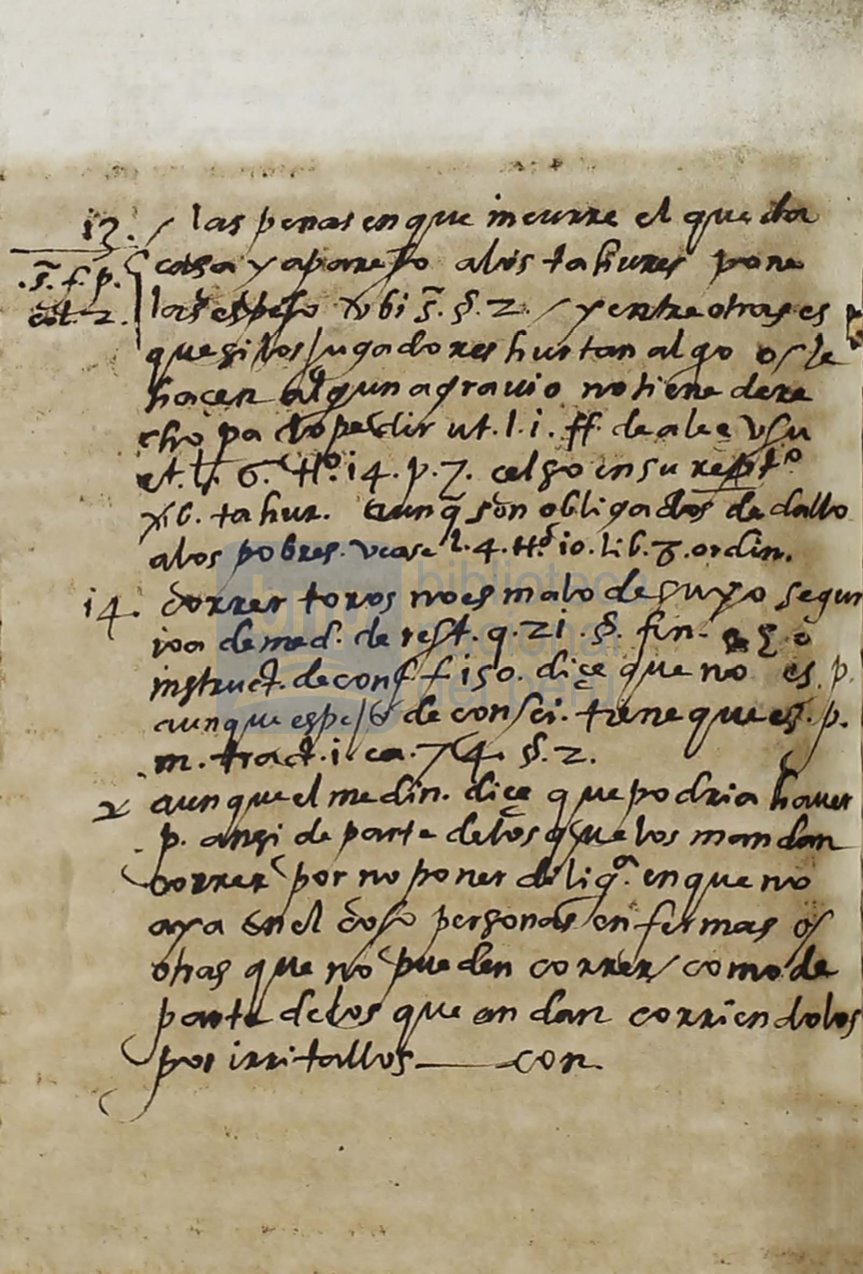 13. / las penas en que incurre el que da
.s̃. f. p. casa y aparejo a los tahures pone
col. 2. las espejo vbi s̃. §. 2. / y entre otras es
que si los jugadores hurtan algo o / le
hacen algun agrauio no tiene dere
cho pa lo pedir ut. l. i. ff. de alee vsu
et. l. 6. tt.º 14. p. 7. celso in su reptº
v. tahur. aunq̃ son obligados de dallo
a los pobres. vease l. 4. tt.º 10. lib. 8. ordin.
14. correr toros no es malo de suyo segun
ioa de med. de rest. q. 21. §. fin.
instruct. de conf f 150. diçe que no es. p.
aunque espejo de consci. tiene que es. p.
m. tract. i. ca. 74. §. 2.
2 aunque el medin. diçe que podria hauer
p. ansi de parte de los que los mandan
correr por no poner deligª. en que no
aya en el coso personas enfermas o /
otras que no pueden correr / como de
parte de los que andan corriendolos
por irritallos ——— con.